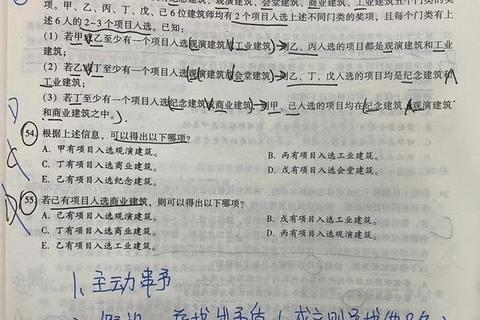 项。甲、乙、丙、丁、戊、己6位建筑师均有2个项目入选上述不同门类的奖项,且每个门类有上
述6人的2~3个项目入选。已知:
(1)若甲或乙至少有一个项目入选观演建筑或工业建筑,则乙、丙入选的项目都是观演建筑和工业
建筑;
(2)若乙或丁至少有一个项目入选观演建筑或会堂建筑,则乙、丁、戊入选的项目均是纪念建筑和
工业建筑;
(3)若丁至少有一个项目入选纪念建筑或商业建筑,则甲、己入选的项目均在纪念建筑、观演建筑
和商业建筑之中。
54. 根据上述信息,可以得出以下哪项?
A. 甲有项目入选观演建筑。 B. 丙有项目入选工业建筑。
C. 丁有项目入选商业建筑。 D. 戊有项目入选会堂建筑。
E. 己有项目入选纪念建筑。
55. 若己有项目入选商业建筑,则可以得出以下哪项?
A. 己有项目入选观演建筑。 B. 戊有项目入选工业建筑。
C. 丁有项目入选商业建筑。 D. 丙有项目入选观演建筑。
E. 乙有项目入选工业建筑。
1、主动串予